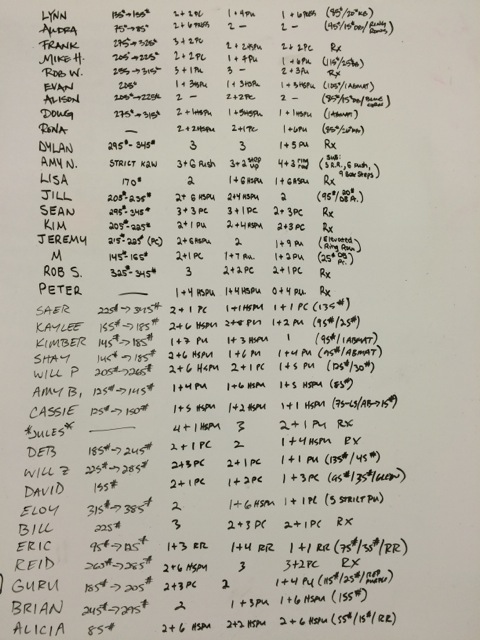 LYNN 135#→155# 2+2PC 1+4PU 1+6PUSS (95#/20#KB)
AUDRA 75#→85# 2+6PUSS 2— 2— (45#/15#DB/RING ROWS)
FRANK 275#→325# 3+2PC 2+2HSPU 2+2PC Rx
MIKE H. 205#→225# 2+2PC 1+4PU 1+6PU (115#/25#)
ROB W. 295→315# 3+1PU 3— 2+3PU Rx
EVAN 205# 1+3HSPU 1+3HSPU 1+5HSPU (105#/1ABMAT)
ALISON 205#→225# 2— 2+2PC 2—
DOUG 275#→315# 2+4HSPU 1+5HSPU 1+1HSPU (1ABMAT)
RONA — 2+2HSPU 2+1PC 1+6PU
DYLAN 295#-345# 3 3 1+5PU Rx
AMY N. STRICT K2W 3+6 Push 3+2 Step up 4+3 ring row (SUB: S.R.R., 6 push, 9 Box Steps)
LISA 170# 2 1+6HSPU 1+6HSPU Rx
JILL 205#-235# 2+6HSPU 2+4HSPU 2 (95#/20# DB)
SEAN 295#-345# 3+3PC 3+1PC 2+3PC Rx
KIM 205#-225# 2+1PU 2+4HSPU 2+3PC Rx
JEREMY 215#-225# (PC) 2+6HSPU 2 1+9PU (Elevated Ring Row)
M 145#-165# 2+1PC 1+7PU. 1+2PU (25# DB Pr.)
ROB S. 325#-345# 3 2+2PC 2+1PC Rx
PETER — 1+4HSPU 1+4HSPU 0+4PU. Rx
SAER 225#→345# 2+1PC 1+1HSPU 1+1PC (135#)
KAYLEE 155#→185# 2+6HSPU 2+8PU 1+2PU (95#/25#)
KIMBER 145#→185# 1+7PU 1+3HSPU 1 (95#/1ABMAT)
SHAY 145#→185# 2+6HSPU 1+6PU 1+4PU (95#/ABMAT)
WILL P 205#→265# 2+6HSPU 2+1PC 1+5PU (125#/30#)
AMY B. 125#→145# 1+4PU 1+6HSPU 1+5HSPU (83#)
CASSIE 125#→150# 1+5HSPU 1+2HSPU 1+1HSPU
*JULES* — 4+1HSPU 3 2+1PU Rx
DEB 185#→245# 2+1PC 2 1+4HSPU Rx
WILL Z 225#→285# 2+3PC 2+1PC 1+1PU (135#/45#)
DAVID 155# 2+1PC 1+2PC 1+3PC
ELOY 315#→385# 2 1+6HSPU 1+1PC (5 STRICT PU)
BILL 225# 3 2+3PC 2+1PC RX
ERIC 95#→125# 1+3RR 1+4RR 1+1RR (75#/35#/RR)
REID 265#→285# 2+6HSPU 3 3+2PC RX
GURU 185#→205# 2+3PC 2 1+4PU
BRIAN 245#→295# 2 1+3PU 1+6HSPU (155#)
ALICIA 85# 2+6HSPU 2+2HSPU 2+6HSPU (55#/15#/RR)